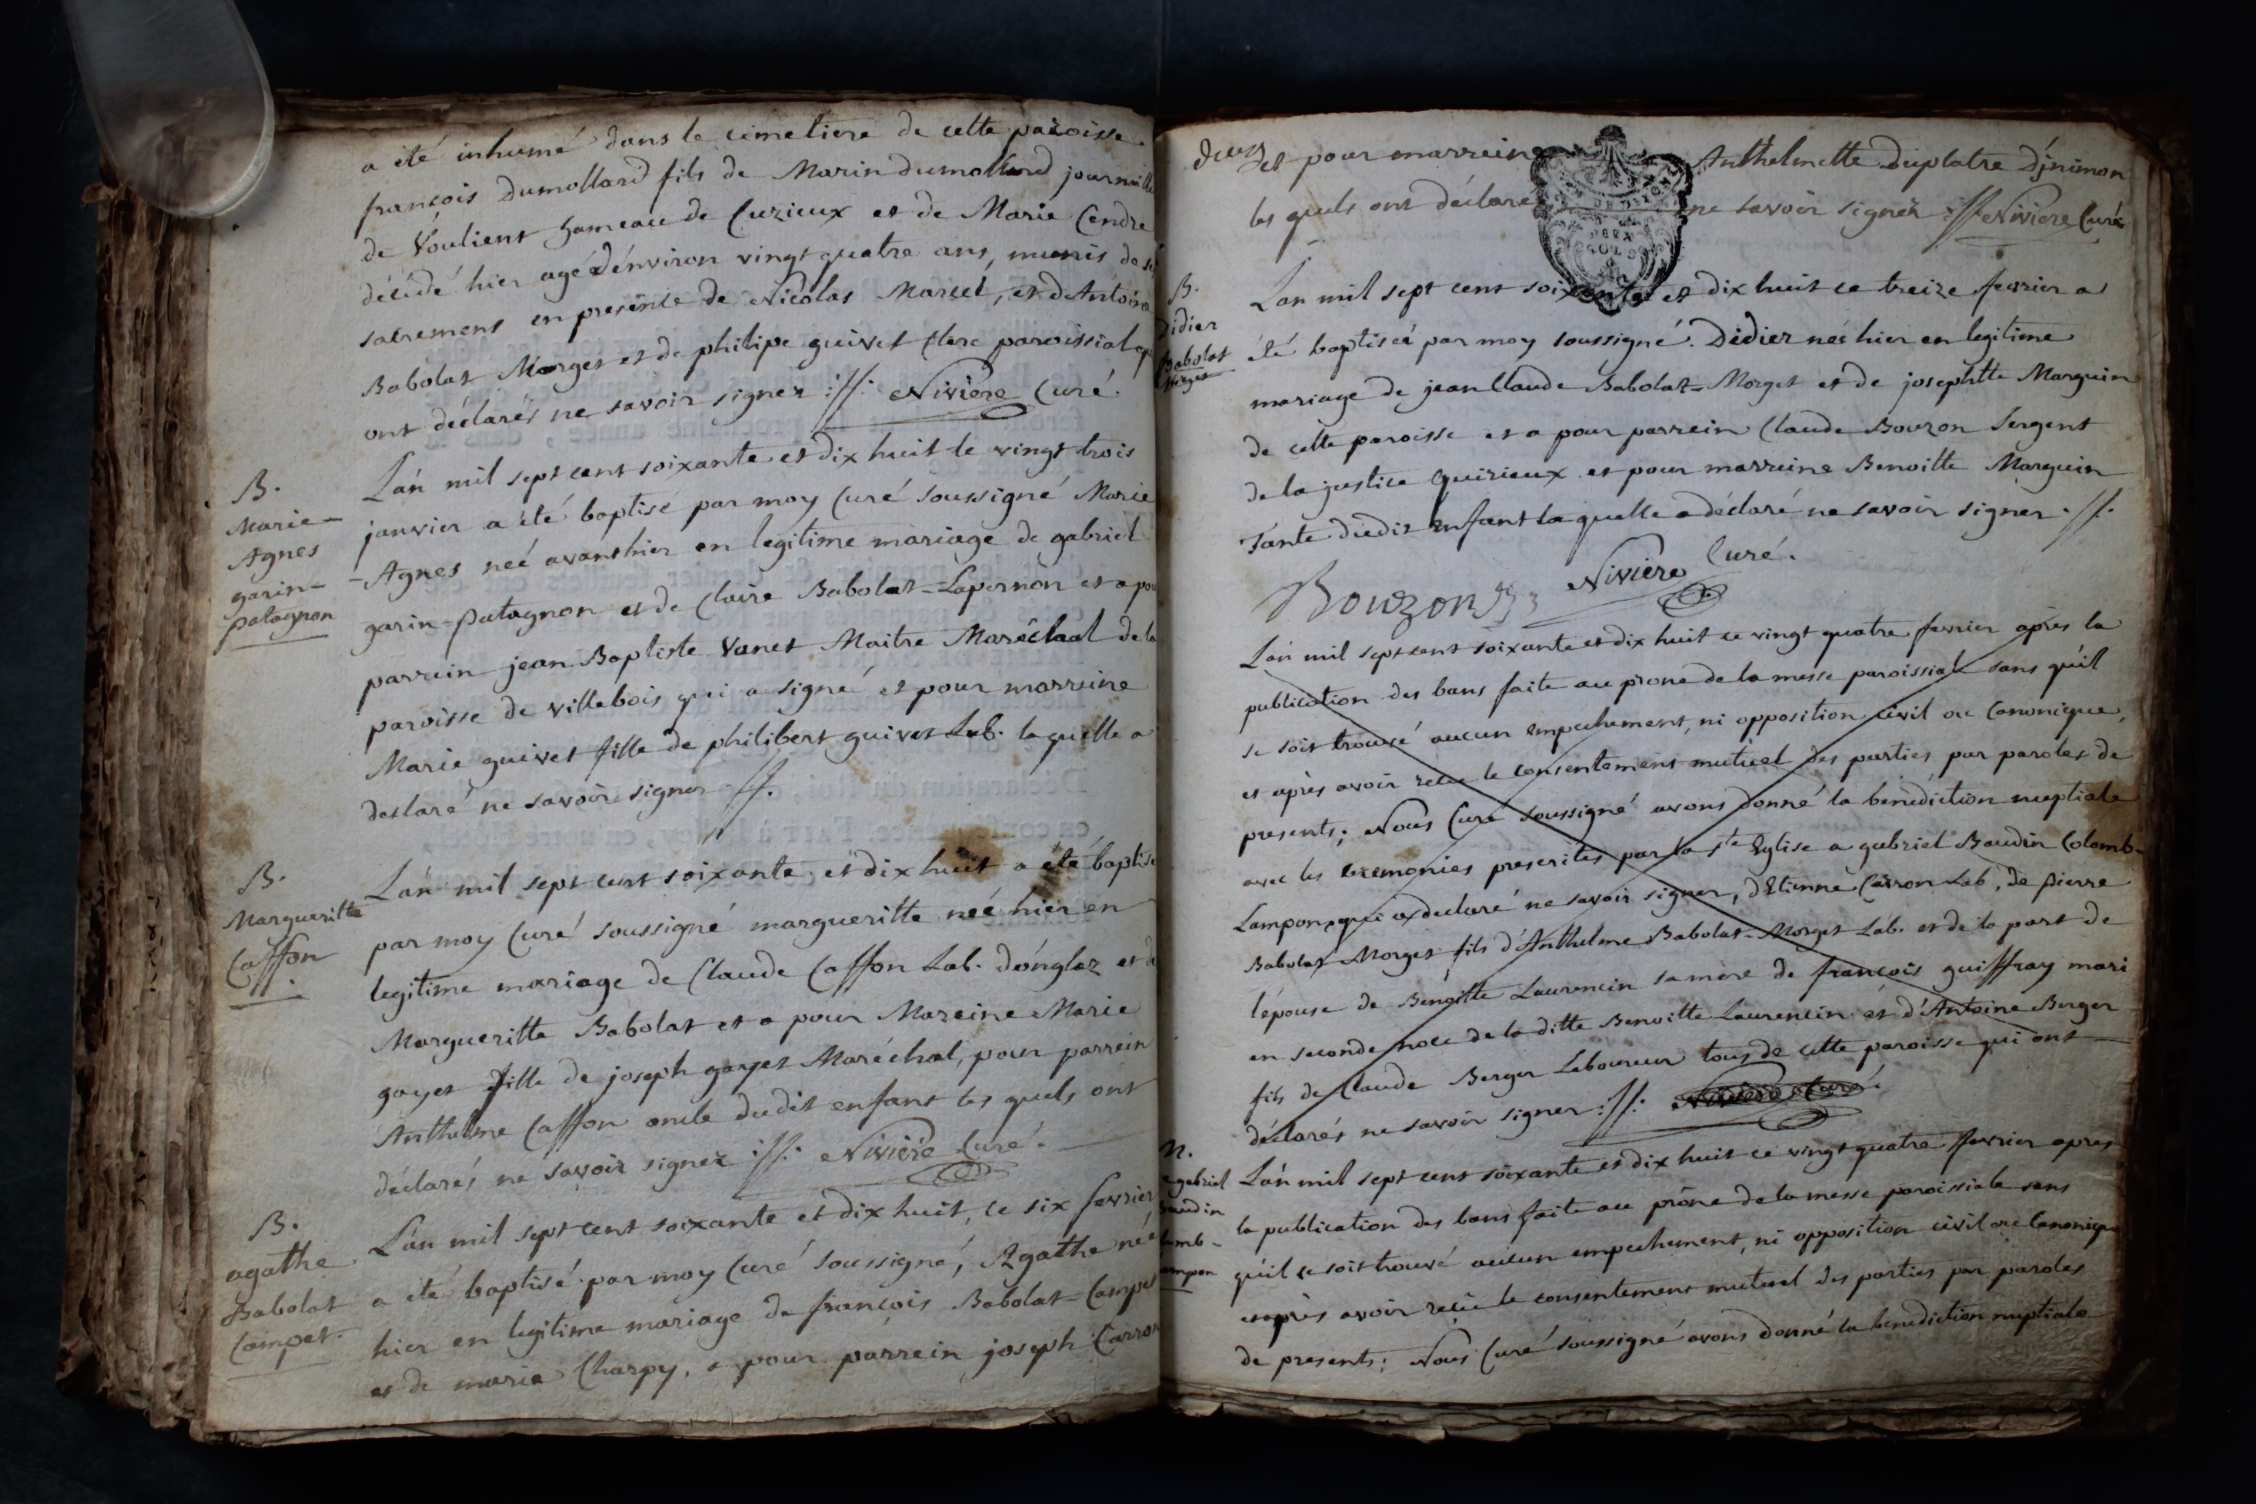 a été inhumé dans le cimetiere de cette paroisse
françois Dumollard fils de Marin dumollard journallier
de Voulient hameau de Cuzieux et de Marie Cendre
décédé hier agé d'énviron vingt quatre ans, munis de
sacremens en presence de Nicolas Marcel, et d'Antoine
Babolat Morget et de philipe guivet Clerc paroissial
ont déclarés ne savoir signer ://: Niviere Curé.
B.
Marie-
Agnes
garin-
patagnon
L'an mil sept cent soixante et dix huit le vingt trois
janvier a été baptisé par moy Curé soussigné Marie
Agnes neé avanthier en legitime mariage de gabriel
garin=patagnon et de Claire Babolat=Lapernon et a pour
parrein jean Baptiste Vanet Maitre Maréchal de la
paroisse de villebois qui a signé et pour marreine
Marie guivet fille de philibert guivet Lab. laquelle a
déclaré ne savoir signer //.
B.
Margueritte
Caffon
L'an mil sept cent soixante et dix huit a été baptisé
par moy Curé soussigné margueritte neé hier en
legitime mariage de Claude Caffon Lab. d'onglaz et de
Margueritte Babolat et a pour Mareine Marie
gayet fille de joseph gayet Maréchal, pour parrein
Anthelme Caffon oncle dudit enfant les quels ont
déclarés ne savoir signer ://: Niviére Curé.
B.
agathe
Babolat
Compet.
L'an mil sept cent soixante et dix huit, ce six fevrier
a été baptisé par moy Curé soussigné, Agathe née
hier en legitime mariage de françois Babolat=Compet
et de marie Charpy, a pour parrein joseph Carron
deux
et pour marreine Anthelmette Duplatre
les quels ont déclaré ne savoir signer ://: Niviere Curé
DEUX
SOLS
B.
Didier
Babolat
Morget
L'an mil sept cent soixante et dix huit ce treize fevrier a
été baptisé par moy soussigné. Didier neé hier en legitime
mariage de jean Claude Babolat=Morget et de josephtte Marguin
de cette paroisse et a pour parrein Claude Bouzon Sergent
de la justice Quirieux et pour marreine Benoitte Marguin
Tante dudit Enfant laquelle a déclaré ne savoir signer. //.
Bouzon Niviére Curé.
L'an mil sept cent soixante et dix huit ce vingt quatre fevrier aprés la
publication des bans faite au prone de la messe paroissiale sans qu'il
se soit trouvé aucun empechement, ni opposition civil ou Canonique,
et aprés avoir reçu le consentement mutuel des parties par paroles de
presents; Nous Curé soussigné avons donné la bénédiction nuptiale
avec les ceremonies prescrites par la ste Eglise a gabriel Baudin Colomb-
Lampon, qui a declaré ne savoir signer, d'Etienne Carron Lab, de pierre
Babolat Morget fils d'Anthelme Babolat-Morget Lab. et de la part de
l'épouse de Benoitte Laurencin sa mere de françois guiffray mari
en seconde noce de la ditte Benoitte Laurencin et d'Antoine Berger
fils de Claude Berger Laboureur tous de cette paroisse qui ont
déclarés ne savoir signer ://: Niviére Curé.
N.
gabriel
Baudin
L'an mil sept cent soixante et dix huit ce vingt quatre fevrier apres
la publication des bans faite au prône de la messe paroissiale sans
qu'il se soit trouvé aucun empechement, ni opposition civil ou Canonique
et aprés avoir reçu le consentement mutuel des parties par paroles
de presents; Nous Curé soussigné avons donné la benediction nuptiale